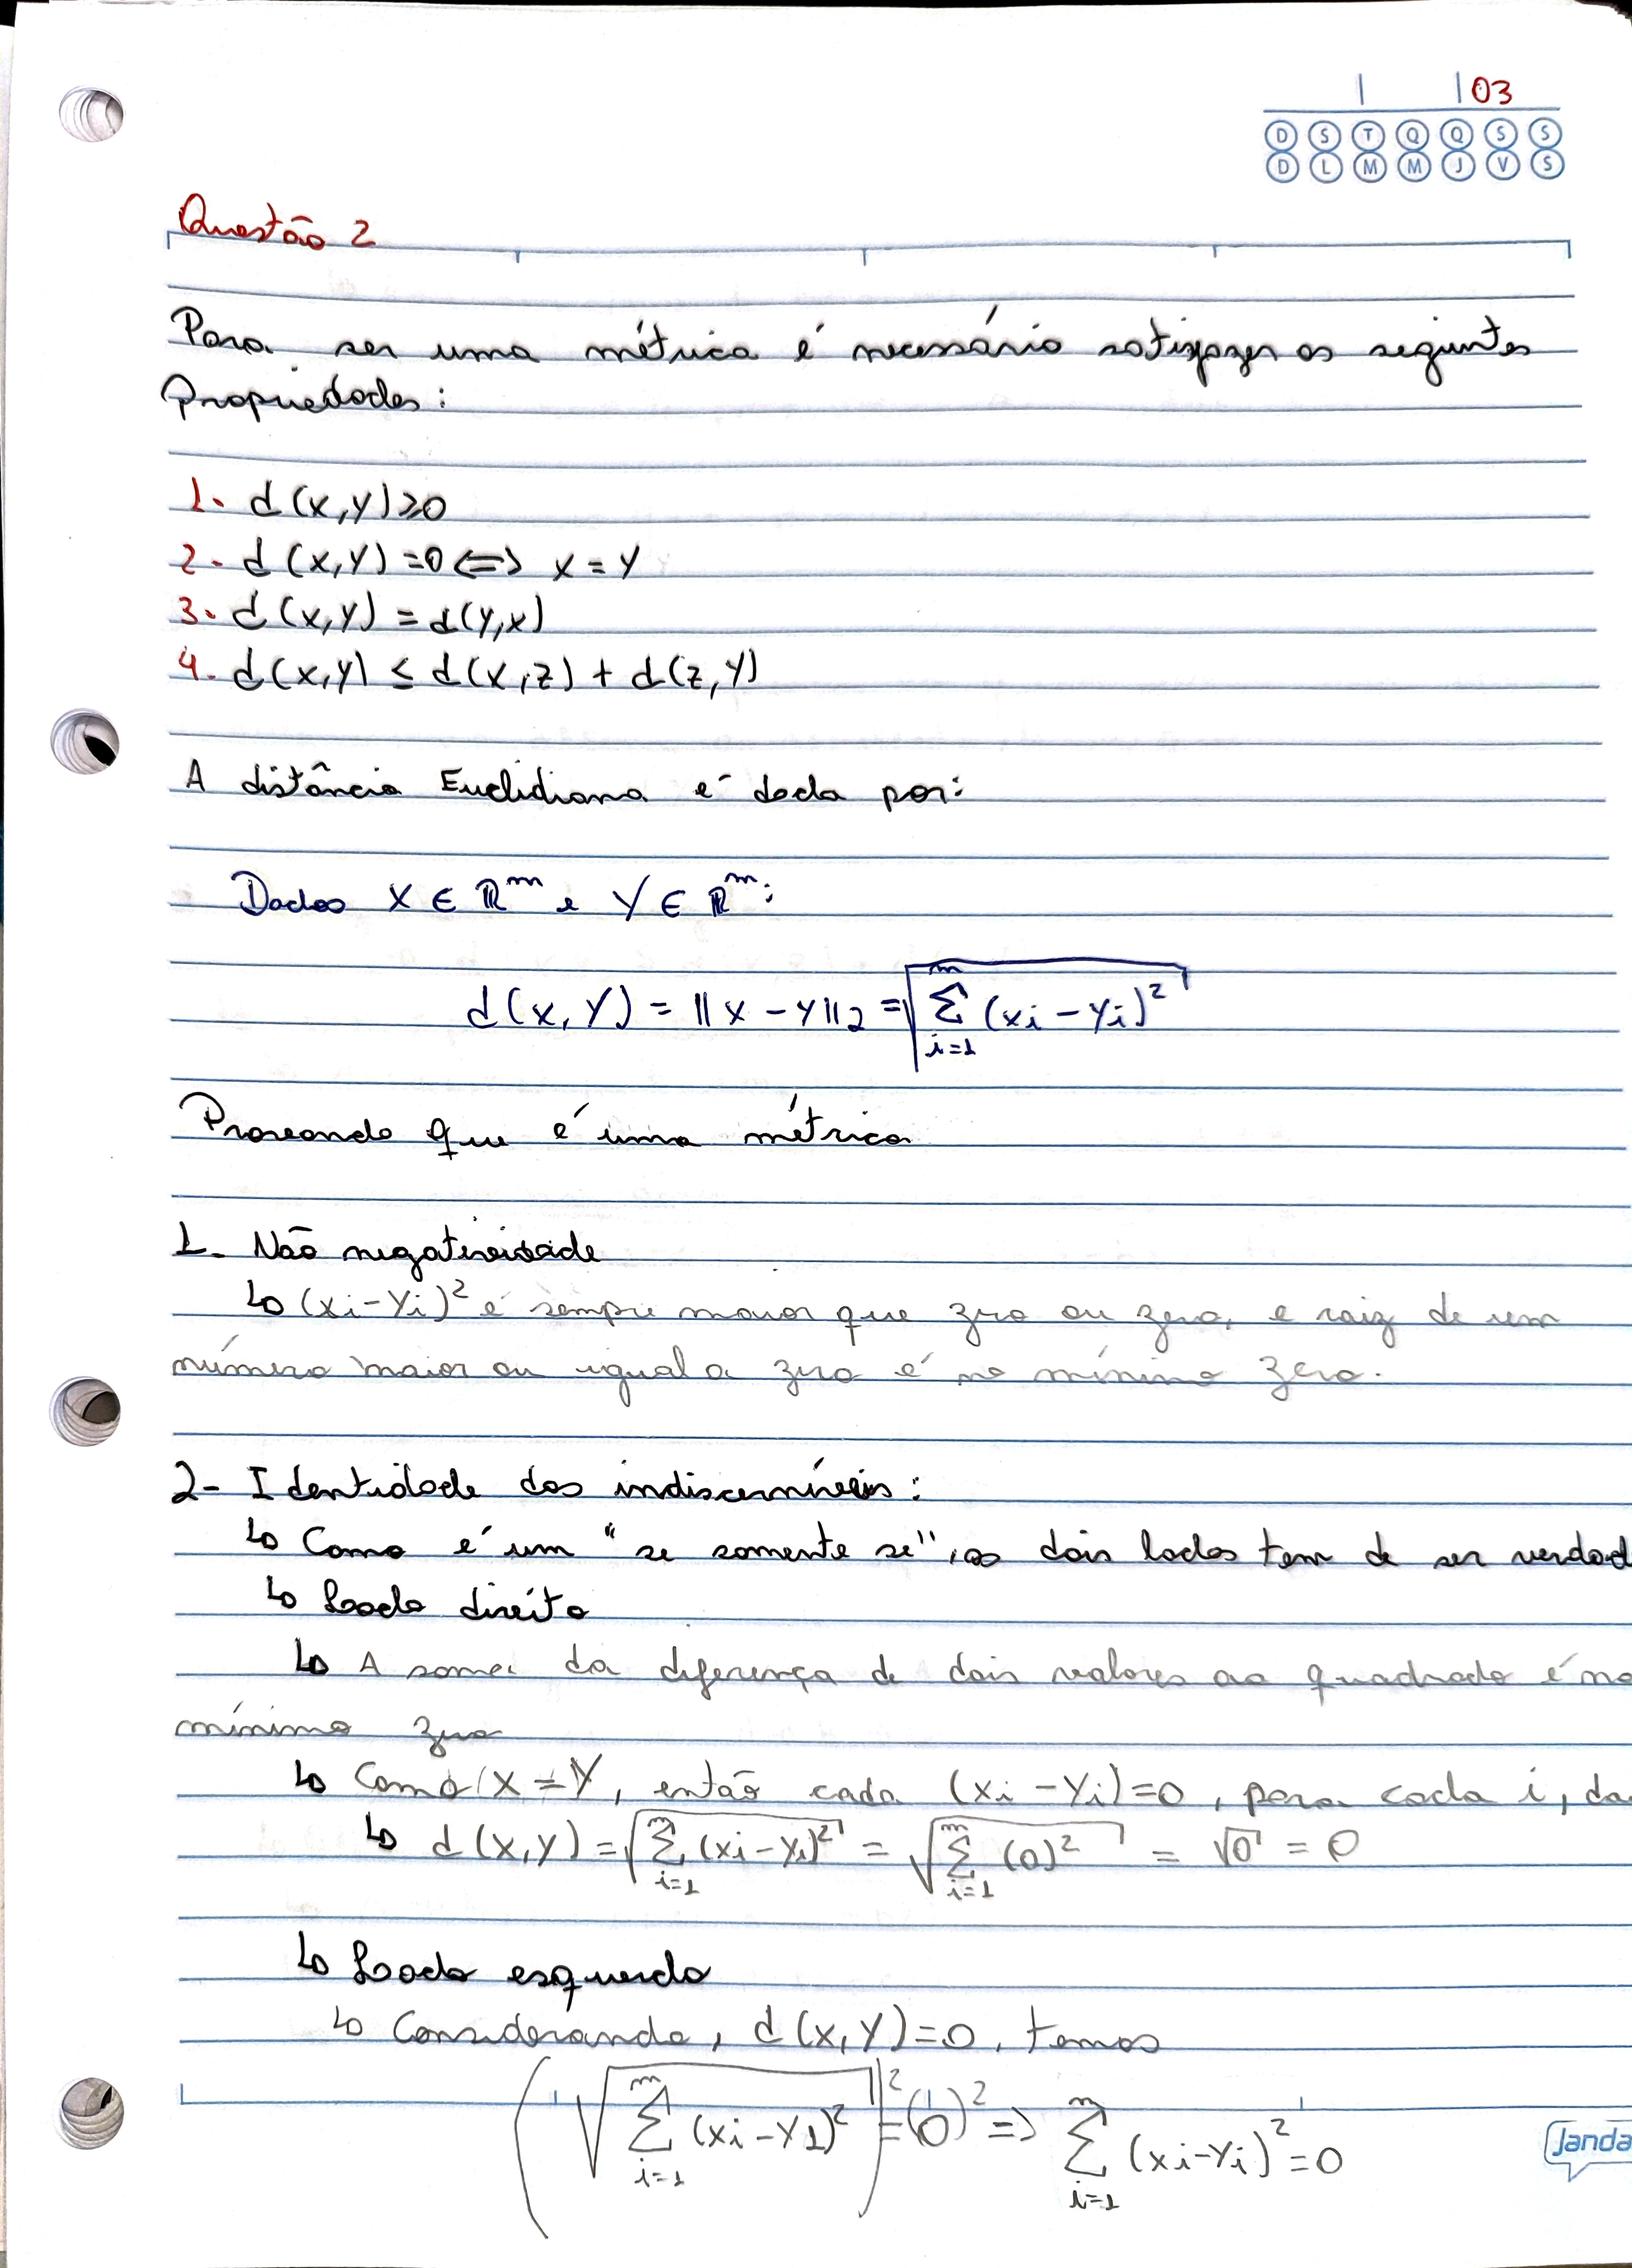 03
D S T Q Q S S
D L M M J V S
Questão 2
Para ser uma métrica é necessário satisfazer as seguintes
Propriedades:
1. d(x,y)≥0
2. d(x,y)=0 <=> x = y
3. d(x,y) = d(y,x)
4. d(x,y) ≤ d(x,z) + d(z,y)
A distância Euclidiana é dada por:
Dados X ∈ ℝᵐ e Y ∈ ℝᵐ:
d(x,y) = ||x - y||₂ = √(∑ᵢ₌₁ᵐ (xi - yi)²)
Provando que é uma métrica
1. Não negatividade
↳ (xi-yi)² é sempre maior que zero ou zero, e raiz de um
número maior ou igual a zero é no mínimo zero.
2- Identidade dos indiscerníveis:
↳ Como é um "se somente se", os dois lados tem de ser verdad
↳ Lado direito
↳ A soma da diferença de dois valores ao quadrado é no
mínimo zero
↳ Como X = Y, então cada (xi - yi)=0, para cada i, da
↳ d(x,y) = √(∑ᵢ₌₁ᵐ (xi-yi)²) = √(∑ᵢ₌₁ᵐ (0)²) = √0 = 0
↳ Lado esquerdo
↳ Considerando, d(x,y)=0, temos
(√(∑ᵢ₌₁ᵐ (xi-y1)²))² = (0)² => ∑ᵢ₌₁ᵐ (xi-yi)² = 0
Janda